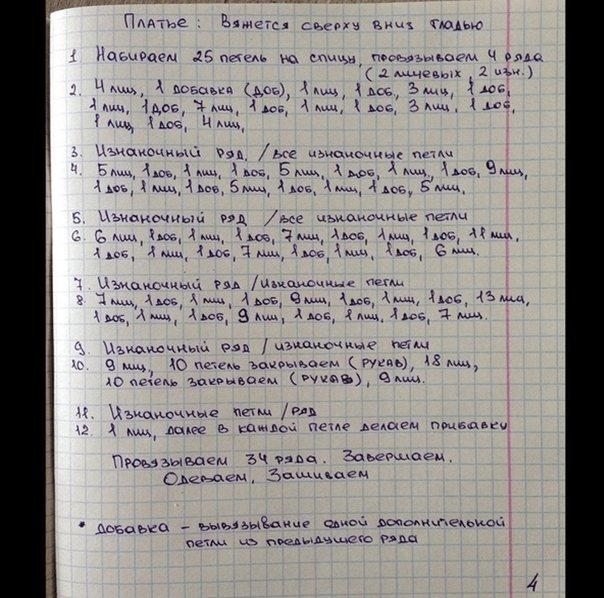 Платье: Вяжется сверху вниз гладью
1 Набираем 25 петель на спицы, провязываем 4 ряда
(2 лицевых, 2 изн.)
2. 4 лиц, 1 добавка (доб), 1 лиц, 1 доб, 3 лиц, 1 доб,
1 лиц, 1 доб, 7 лиц, 1 доб, 1 лиц, 1 доб, 3 лиц, 1 доб,
1 лиц, 1 доб, 4 лиц,
3. Изнаночный ряд, /все изнаночные петли
4. 5 лиц, 1 доб, 1 лиц, 1 доб, 5 лиц, 1 доб, 1 лиц, 1 доб, 9 лиц,
1 доб, 1 лиц, 1 доб, 5 лиц, 1 доб, 1 лиц, 1 доб, 5 лиц.
5. Изнаночный ряд /все изнаночные петли
6. 6 лиц, 1 доб, 1 лиц, 1 доб, 7 лиц, 1 доб, 1 лиц, 1 доб, 11 лиц,
1 доб, 1 лиц, 1 доб, 7 лиц, 1 доб, 1 лиц, 1 доб, 6 лиц.
7. Изнаночный ряд /изнаночные петли
8. 7 лиц, 1 доб, 1 лиц, 1 доб, 9 лиц, 1 доб, 1 лиц, 1 доб, 13 лиц,
1 доб, 1 лиц, 1 доб, 9 лиц, 1 доб, 1 лиц, 1 доб, 7 лиц.
9. Изнаночный ряд /изнаночные петли
10. 9 лиц, 10 петель закрываем (рукав), 18 лиц,
10 петель закрываем (рукав), 9 лиц.
11. Изнаночные петли /ряд
12. 1 лиц, далее в каждой петле делаем прибавку
Провязываем 34 ряда. Завершаем.
Одеваем, Зашиваем
* Добавка - вывязывание одной дополнительной
петли из предыдущего ряда
4